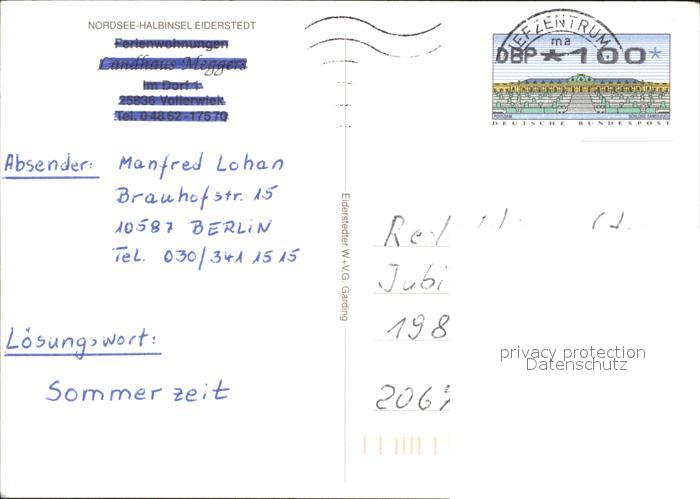 NORDSEE-HALBINSEL EIDERSTEDT
Ferienwohnungen
Landhaus Meggers
Im Dorf 1
25836 Vollerwiek
Tel. 0 48 62 - 175 70
Absender: Manfred Lohan
Brauhofstr. 15
10587 BERLIN
Tel. 030/341 15 15
Lösungswort:
Sommerzeit
Eiderstedter W+V.G. Garding
EFZENTRUM
ma
DBP * 100 *
POTSDAM SCHLOSS SANSSOUCI
DEUTSCHE BUNDESPOST
Red
Jubi
198
206
privacy protection
Datenschutz